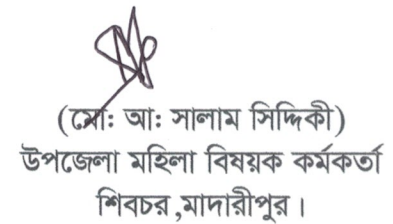 (মো: আ: সালাম সিদ্দিকী)
উপজেলা মহিলা বিষয়ক কর্মকর্তা
শিবচর ,মাদারীপুর ।